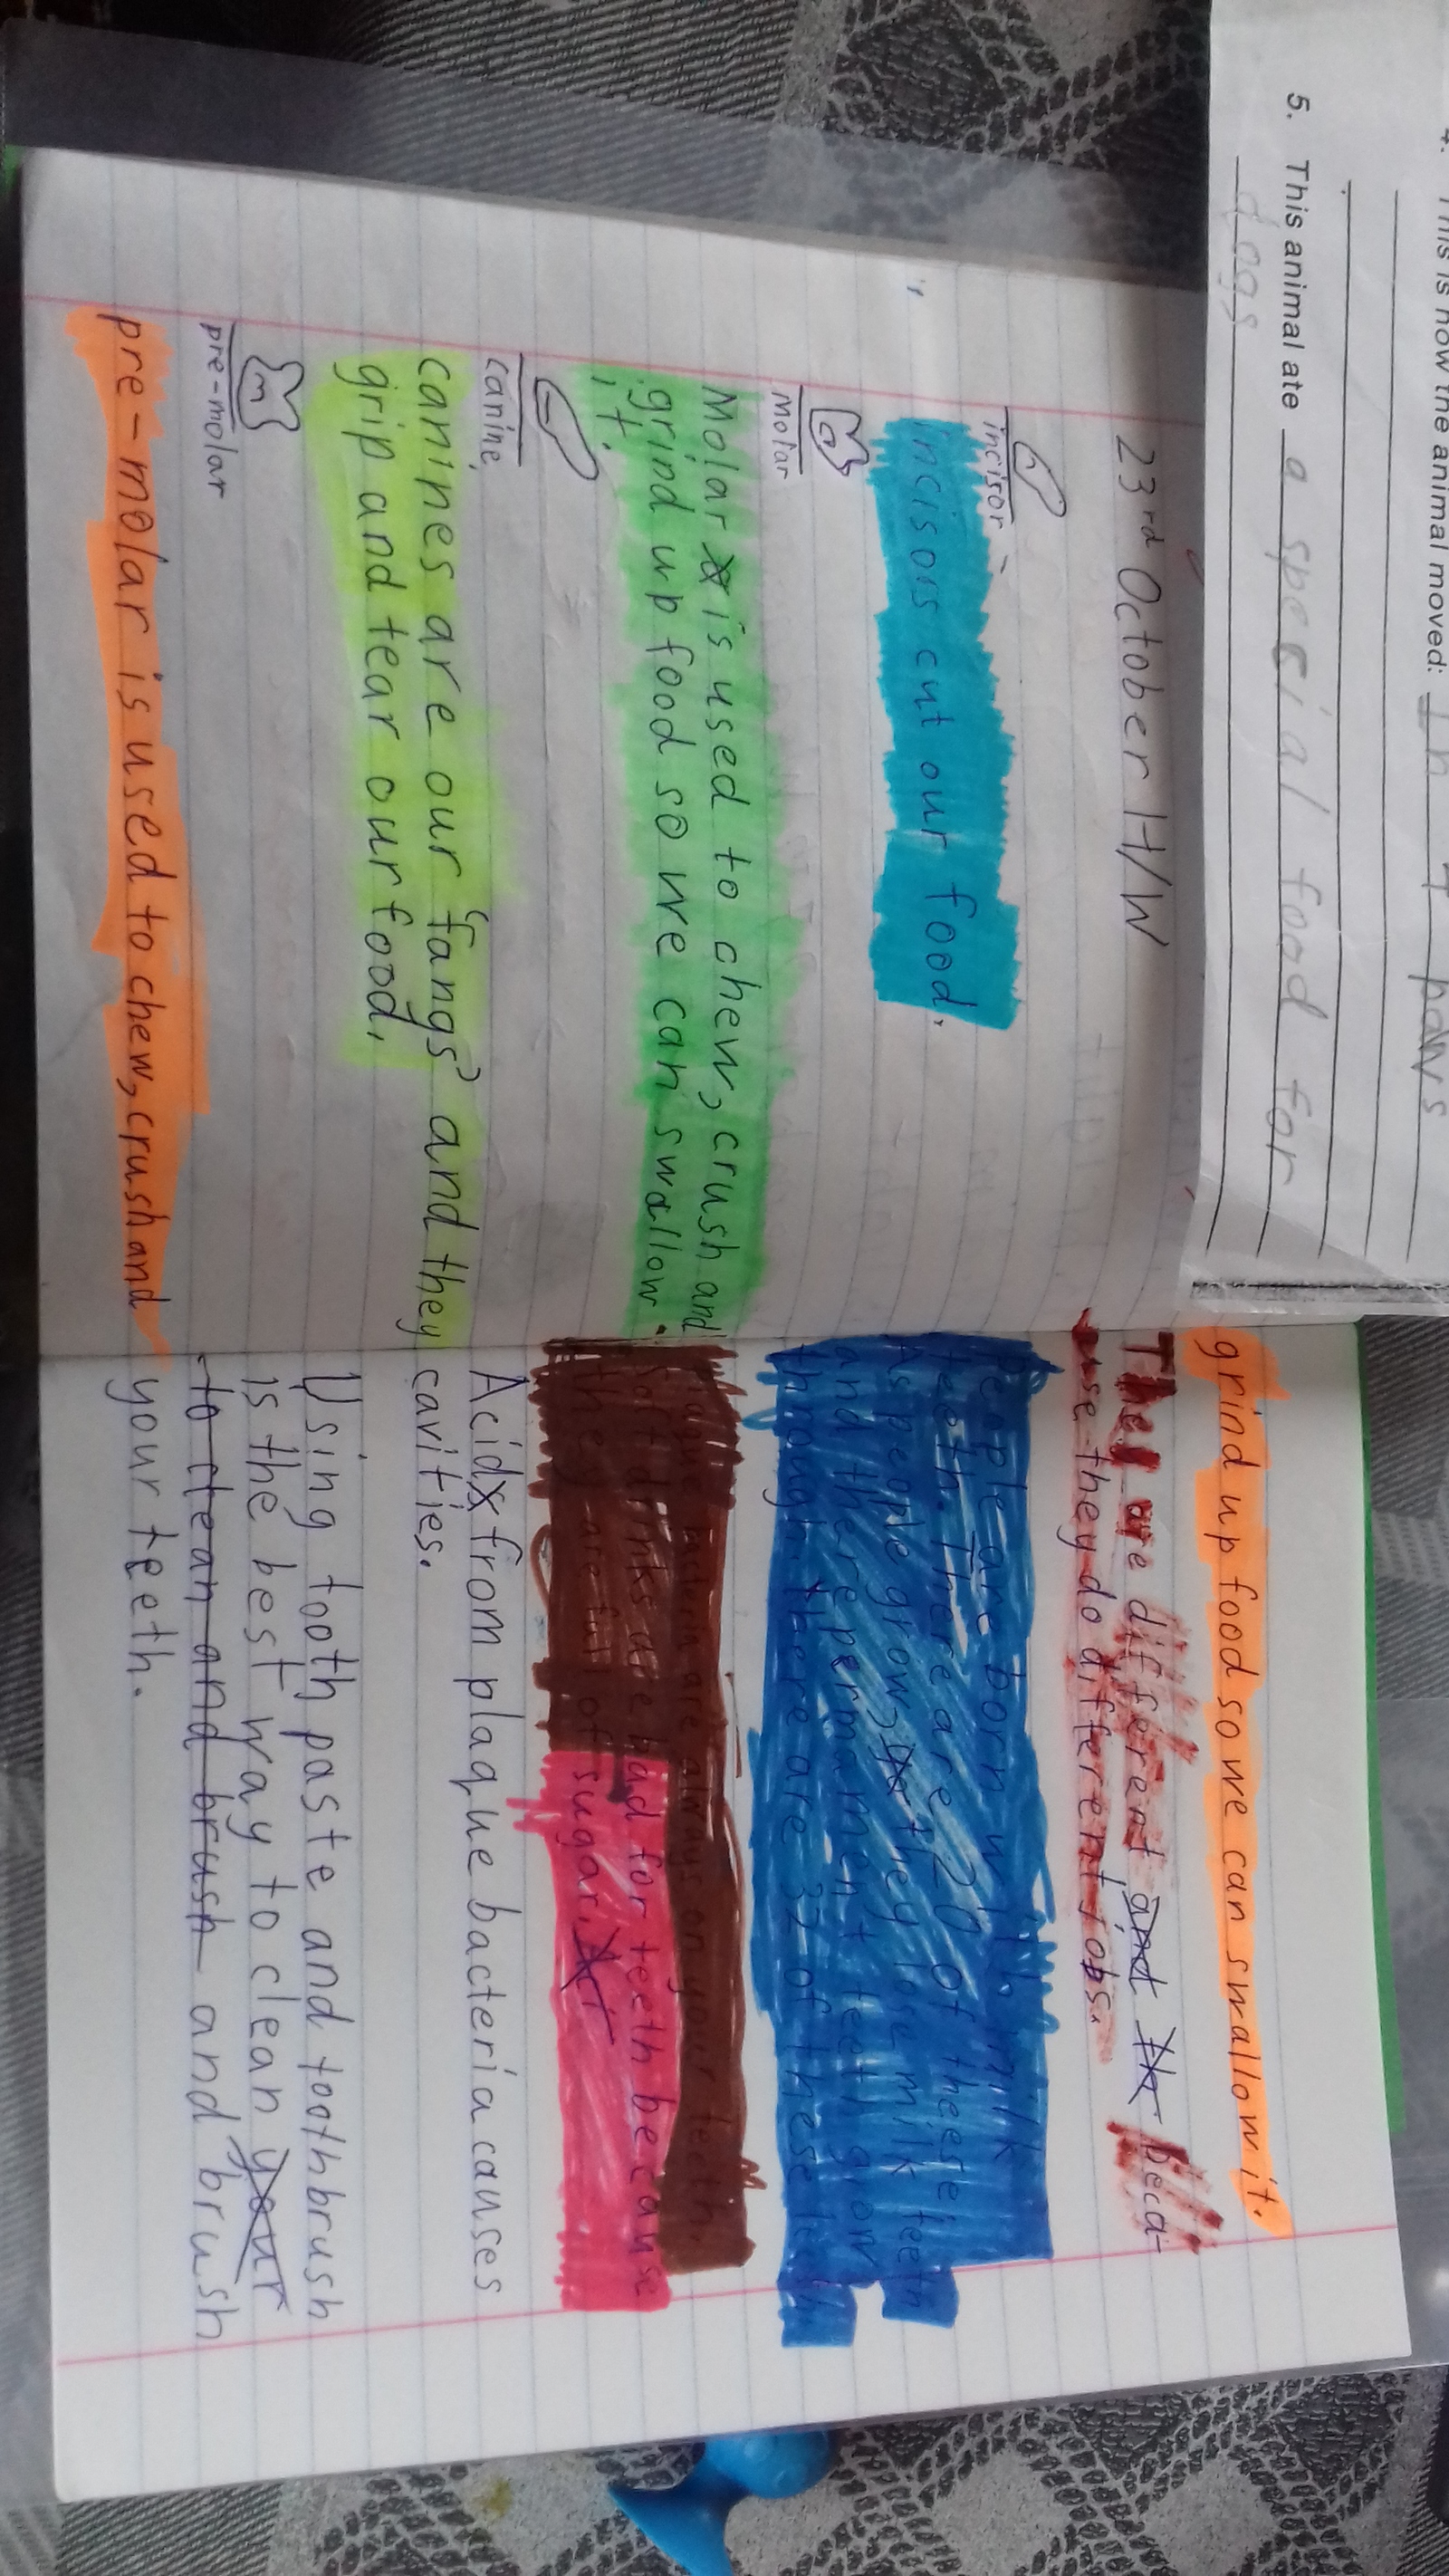 4. This is how the animal moved: In 4 paws
5. This animal ate a special food for
dogs
23rd October H/W
incisor
incisors cut our food.
Molar
Molar is used to chew, crush and
grind up food so we can swallow
it.
canine
canines are our 'fangs' and they
grip and tear our food.
pre-molar
pre-molar is used to chew, crush and
grind up food so we can swallow it.
They are different and beca-
use they do different jobs.
People are born with milk
teeth. There are 20 of theese
As people grow, they lose milk teeth
and there permament teeth grow
through. there are 32 of these teeth
Plaque bacteria are always on your teeth.
Soft drinks are bad for teeth because
they are full of sugar.
Acid from plaque bacteria causes
cavities.
Using tooth paste and toothbrush
is the best way to clean your
to clean and brush and brush
your teeth.